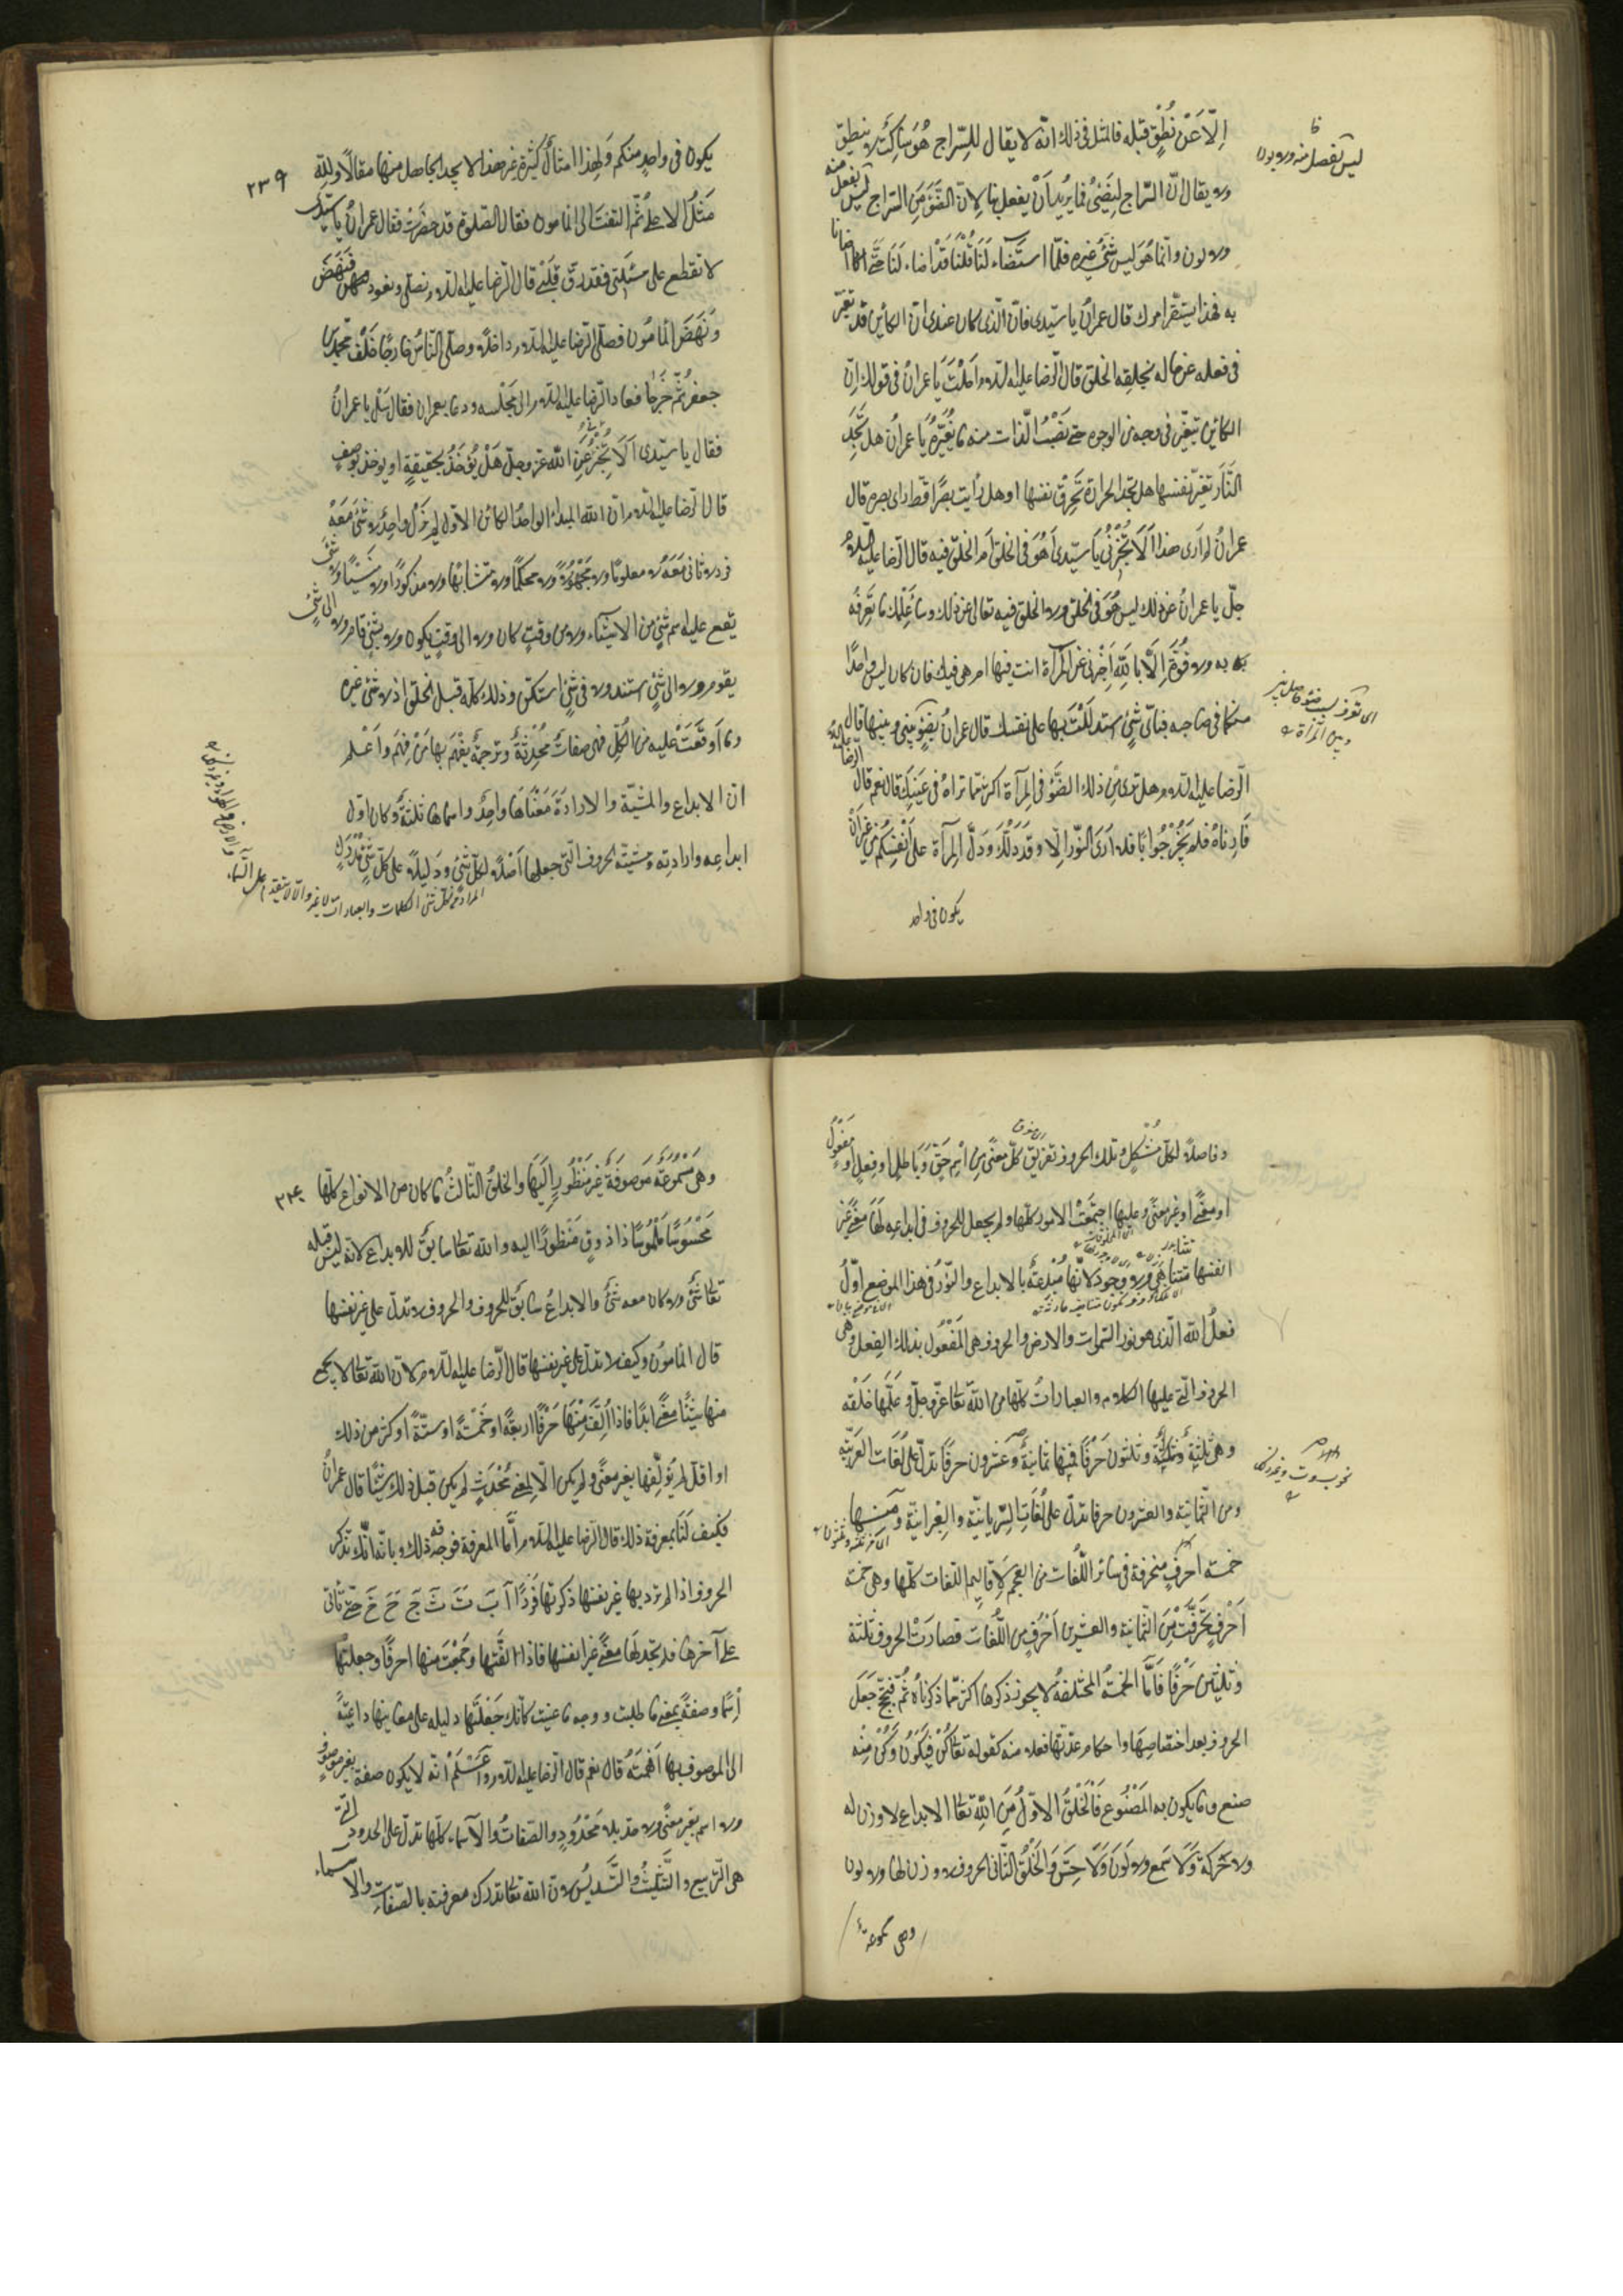 إلّا عَنْ نُطْقٍ قبله فالمثل فى ذلك انّه لا يقال للسّراج هُوَ ساكِتٌ لا ينطق
ولا يقال انّ السّراج لَيُضِيئُ فما يُرِيدُ أَنْ يفعل بنا لانّ الضَّوْءَ مِنَ السّراج ليس بفعل منه
ولا كون وانّما هُوَ ليس شَئٌ غيره فلمّا استَضَاء لَنَا قُلْنَا قَدْ اضاء لَنَا حَتَّى استضأنا
به فبهذا يستبصر امرك قال عمران يا سيّدى فانّ الّذى كان عندى انّ الكائن قد تغيّر
فى فعله عن حاله بخلقه الخلق قال الرّضا عليه السّلام احَلْتَ يا عمرانُ فى قولك انّ
الكائن يتغيّر فى وجه من الوجوه حتّى يُصِيبَ الذّات منه ما يُغَيِّرُهُ يا عمرانُ هل تَجِدُ
النَّار تغيّر نفسها هل تجد الحرارة تُحْرِقُ نفسها او هل رأيت بصرًا قطّ راى بصره قال
عمرانُ لم أرى هذا أَلَا تُخْبِرُنِى يَا سيّدى أَهُوَ فى الخلق أم الخلق فيه قال الرّضا عليه السلام
جلّ يا عمرانُ عن ذلك ليس هُوَ فى الخلق ولا الخلق فيه تعالى عن ذلك وسأعلّمك ما تعرفه
به ولا قُوَّةَ إِلَّا بِاللَّهِ أَخْبِرْنى عن المرآة انت فيها ام هى فيك فان كان ليس واحدًا
منكما فى صاحبه فبأىّ شئٍ استدللت بها على نفسك قال عمرانُ بضوءٍ بينى وبينها قال
الرّضا عليه السّلام هل ترى من ذلك الضَّوْء فى المرآة اكثر ممّا تراهُ فى عينك قال نعم قال الرضا
فَأَرِنَاهُ فلم يحر جوابًا قال فلا أرى النّور إلّا وقد دلّك ودلّ المرآة على أنفسكما من غير أن
يكون فى واحد
٢٣٩
يكون فى واحدٍ منكم ولهذا امثالٌ كثيرة غير هذا لا يجد الجاهل منها مقالًا وللّه
مَثَلُ الاعلى ثمّ التفت الى المامون فقال الصّلوة قد حضرت فقال عمرانُ يا سيّدى
لا تقطع على مسئلتى فقد رقّ قلبى قال الرّضا عليه السّلام نصلّى ونعود فنهض
ونَهَضَ المأمُون فصلّى الرّضا عليه السّلام داخلًا وصلّى النّاسُ خارجًا خلف محمّد بن
جعفر ثمّ خرجا فعاد الرّضا عليه السّلام الى مجلسه ودعا بعمران فقال سَلْ يا عمرانُ
فقال يا سيّدى أَلَا تُخْبِرُنِى عن اللّه عزّ وجلّ هل يُوَحَّدُ بحقيقةٍ او يوحّد بوصفٍ
قال الرّضا عليه السّلام انّ اللّه المبدءُ الواحدُ الكائن الاوّل لم يزل واحدًا لا شئ مَعَهُ
فردًا لا ثانى مَعَهُ لا معلومًا ولا مَجْهُولًا ولا محكمًا ولا متشابهًا ولا مذكورًا ولا منسيًّا ولا شئ
يقع عليه اسم شئٍ من الاشياء ولا من وقتٍ كان ولا الى وقتٍ يكون ولا بشئٍ قام ولا الى شئٍ
يقوم ولا الى شئٍ استند ولا فى شئٍ استكنّ وذلك كلّه قبل الخلق اذ لا شئ غيره
وما أوقعت عليه من الكلّ فهى صفات محدثة وترجمةٌ يفهم بها مَنْ فَهِمَ واعلم
انّ الابداع والمشيّة والارادة مَعْنَاهَا واحدٌ واسماءها ثلثةٌ وكان اوّل
ابداعه وارادته ومشيّته الحروف الّتى جعلها أصلًا لكلّ شئ ودليلًا على كلّ شئٍ مدركٍ
وفاصلًا لكلّ مُشْكِلٍ وتلك الحروف تفريق كلّ معنًى من اسم حَقٍّ وبَاطِلٍ او فعلٍ او مفعولٍ
او معنًى او غير معنًى وعليها اجتَمَعَتْ الامور كلّها ولم يجعل للحروف فى ابداعه لها معنًى غير
انفسها تتناهى ولا وجود لانّها مُبْدَعَةٌ بالابداع والنّورُ فى هذا الموضع اوّلُ
فعل اللّه الّذى هو نور السّموات والارض والحروف هى المفعول بذلك الفعل وهى
الحروف الّتى عليها الكلام والعباراتُ كلّها من اللّه تعالى عزّ وجلّ وعلّمها خلقه
وهى ثلثةٌ وثلثون حرفًا فمنها ثمانيةٌ وعشرون حرفًا تدلّ على لُغَات العَربيّه
ومن الثّمانية والعشرون حرفا تدلّ على لُغَات السّريانيّة والعِبْرانيّة ومنها
خمسة احرفٍ متحرّفة فى سائر اللّغات من العجم لاقاليم اللّغات كلّها وهى خمسة
أَحرفٍ تحرّفت من الثّمانية والعشرين أحرف من اللّغات فصارت الحروف ثلثة
وثلثين حرفًا فأمّا الخمسةُ المختلفةُ لا يجوز ذكرها اكثر ممّا ذكرناهُ ثمّ جعل
الحروف بعد احصائها واحكام عدّتها فعلا منه كقوله تعالى كُنْ فَيَكُونُ وكن منه
صنع وما يكون به المَصْنُوع فالخلقُ الاوّلُ من اللّه تعالى الابداع لا وزن له
ولا حركة ولا سمع ولا لون ولا حسّ والخلق الثّانى الحروف لا وزن لها ولا لون
وهى مسموعة
وهى مسموعةٌ موصوفةٌ غير منظورٍ اليها والخلقُ الثّالثُ ما كان من الانواع كلّها
محسوسًا ملموسًا ذا ذوقٍ منظورًا اليه واللّه تعالى سابقٌ للابداع لانّه ليس قبله
تعالى شئٌ ولا كان معه شئٌ والابداعُ سابقٌ للحروف والحروف لا تدلّ على غير نفسها
قال المامون وكيف لا تدلّ على غير نفسها قال الرّضا عليه السّلام لانّ اللّه تعالى لا يجمع
منها شيئًا لمعنًى ابدًا فاذا ألّف منها حرفًا اربعةً او خمسةً او ستّةً او اكثر من ذلك
او اقلّ لم يؤلّفها بغير معنًى ولم يكن الّا لمعنى محدثٍ لم يكن قبل ذلك شيئًا قال عمرانُ
فكيف لَنَا بمعرفة ذلك قال الرّضا عليه السّلام أمّا المعرفة فوجه ذلك وبابه انّك تذكر
الحروف اذا لم ترد بها غير نفسها ذكرتها فردًا ا بَ تَ ثَ جَ حَ خَ حتّى تأتى
على آخرها فلم تجد لها معنًى غير انفسها فاذا الّفتها وجمعت منها احرفًا وجعلتها
اسمًا وصفةً بمعنى ما طلبت ووجه ما عنيت كانت جَعَلْتَها دليله على معانيها داعيةً
الى الموصوف بها أفهمته قال نعم قال الرّضا عليه السّلام واعلم انّه لا يكون صفة بغير موصوفٍ
ولا اسم بغير معنًى ولا حدّ بلا محدودٍ والصّفاتُ والاسماء كلّها تدلّ على الحدود الّتى
هى التّربيع والتّثليثُ والتّسديسُ لانّ اللّه تعالى تدرك معرفته بالصّفات والاسماء